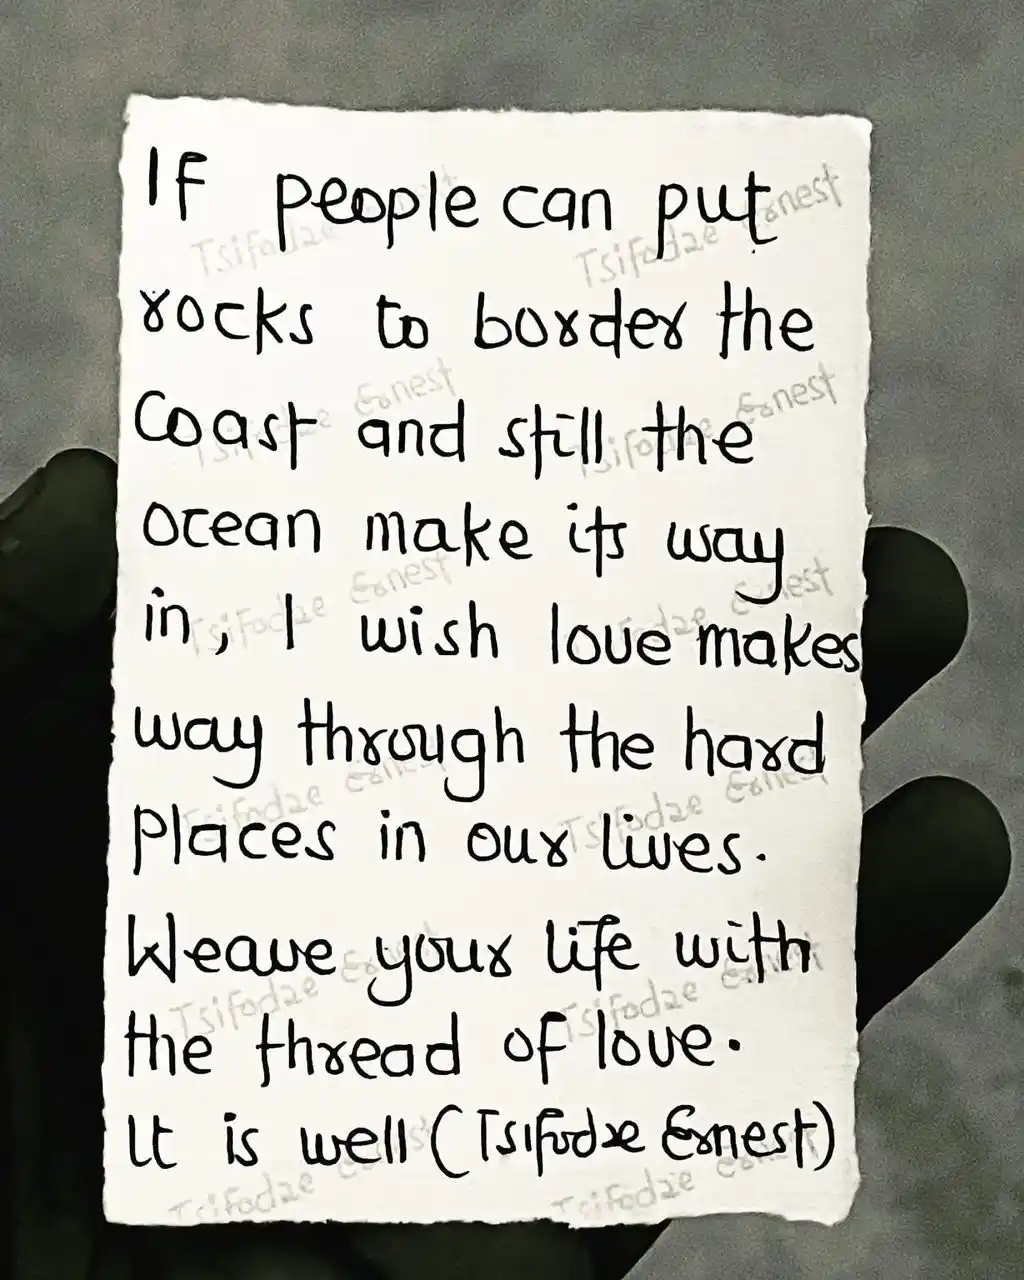 If people can put
rocks to border the
Coast and still the
ocean make its way
in, I wish love makes
way through the hard
Places in our lives.
Weave your life with
the thread of love.
It is well (Tsifodze Ernest)